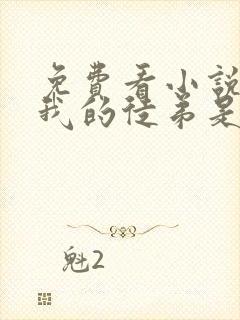 免費看小說
我的徒弟是
魁2